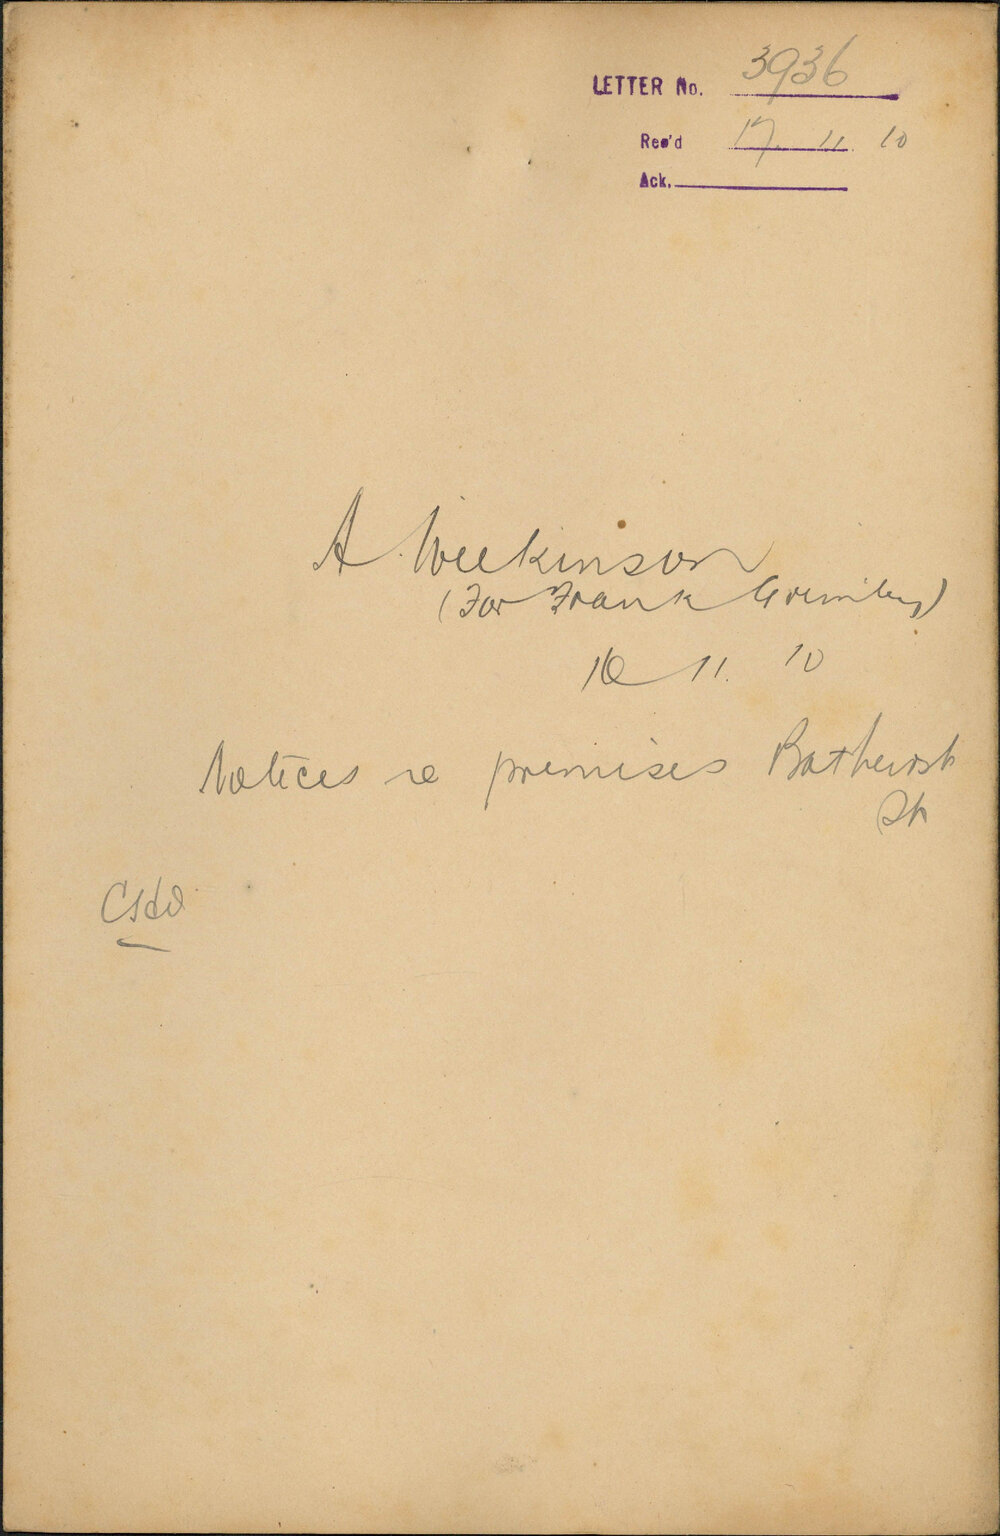 LETTER No. 3936
Rec'd 17. 11. 10
Ack.
A Wilkinson
(For Frank
16 11. 10
Notices re premises Bathurst
St